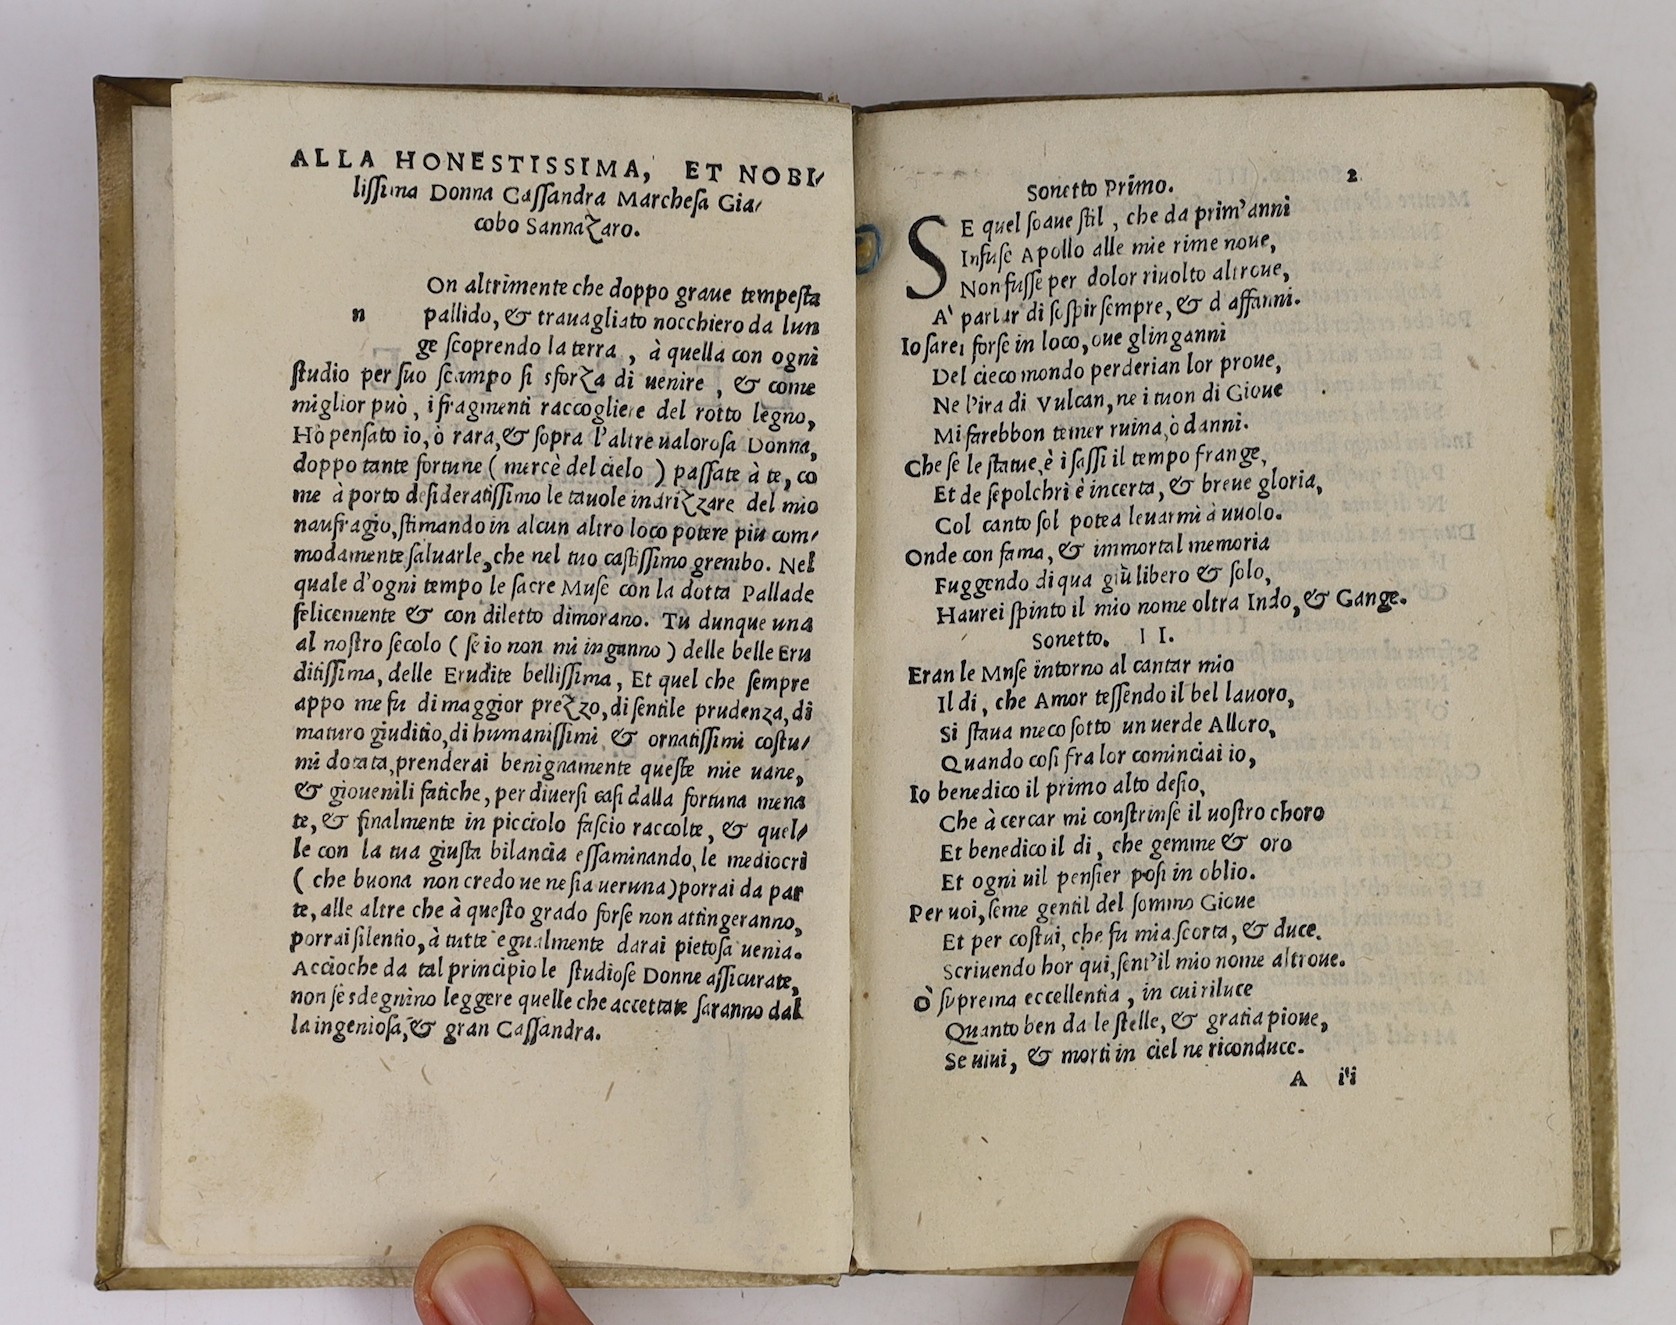 ALLA HONESTISSIMA, ET NOBI/
lissima Donna Cassandra Marchesa Gia/
cobo Sannazaro.
On altrimente che doppo graue tempesta
n pallido, & trauagliato nocchiero da lun
ge scoprendo la terra, à quella con ogni
studio per suo scampo si sforza di uenire, & come
miglior può, i fragmenti raccogliere del rotto legno,
Hò pensato io, ò rara, & sopra l'altre ualorosa Donna,
doppo tante fortune ( mercè del cielo ) passate à te, co
me à porto desideratissimo le tauole indrizzare del mio
naufragio, stimando in alcun altro loco potere piu com/
modamente saluarle, che nel tuo castissimo grembo. Nel
quale d'ogni tempo le sacre Muse con la dotta Pallade
felicemente & con diletto dimorano. Tu dunque una
al nostro secolo ( se io non mi inganno ) delle belle Eru
ditissima, delle Erudite bellissima, Et quel che sempre
appo me fu di maggior prezzo, di sentile prudenza, di
maturo giuditio, di humanissimi & ornatissimi costu/
mi dotata, prenderai benignamente queste mie uane,
& giouenili fatiche, per diuersi casi dalla fortuna mena
te, & finalmente in picciolo fascio raccolte, & quel/
le con la tua giusta bilancia essaminando, le mediocri
( che buona non credo ue ne sia ueruna) porrai da par
te, alle altre che à questo grado forse non attingeranno,
porrai silentio, à tutte egualmente darai pietosa uenia.
Accioche da tal principio le studiose Donne assicurate,
non se sdegnino leggere quelle che accettate saranno dal
la ingeniosa, & gran Cassandra.
2
Sonetto Primo.
SE quel soaue stil, che da prim'anni
Infuse Apollo alle mie rime noue,
Non fusse per dolor riuolto altroue,
A' parlar di sospir sempre, & d affanni.
Io sarei forse in loco, oue glinganni
Del cieco mondo perderian lor proue,
Ne l'ira di Vulcan, ne i tuon di Gioue
Mi farebbon temer ruina, ò danni.
Che se le statue, è i sassi il tempo frange,
Et de sepolchri è incerta, & breue gloria,
Col canto sol potea leuarmi à uuolo.
Onde con fama, & immortal memoria
Fuggendo di qua giù libero & solo,
Haurei spinto il mio nome oltra Indo, & Gange.
Sonetto. II.
Eran le Mnse intorno al cantar mio
Il di, che Amor tessendo il bel lauoro,
Si staua meco sotto un uerde Alloro,
Quando cosi fra lor cominciai io,
Io benedico il primo alto desio,
Che à cercar mi constrinse il uostro choro
Et benedico il di, che gemme & oro
Et ogni uil pensier posi in oblio.
Per uoi, seme gentil del sommo Gioue
Et per costui, che fu mia scorta, & duce.
Scriuendo hor qui, sent'il mio nome altroue.
Ò suprema eccellentia, in cui riluce
Quanto ben da le stelle, & gratia pioue,
Se uiui, & morti in ciel ne riconduce.
A ii